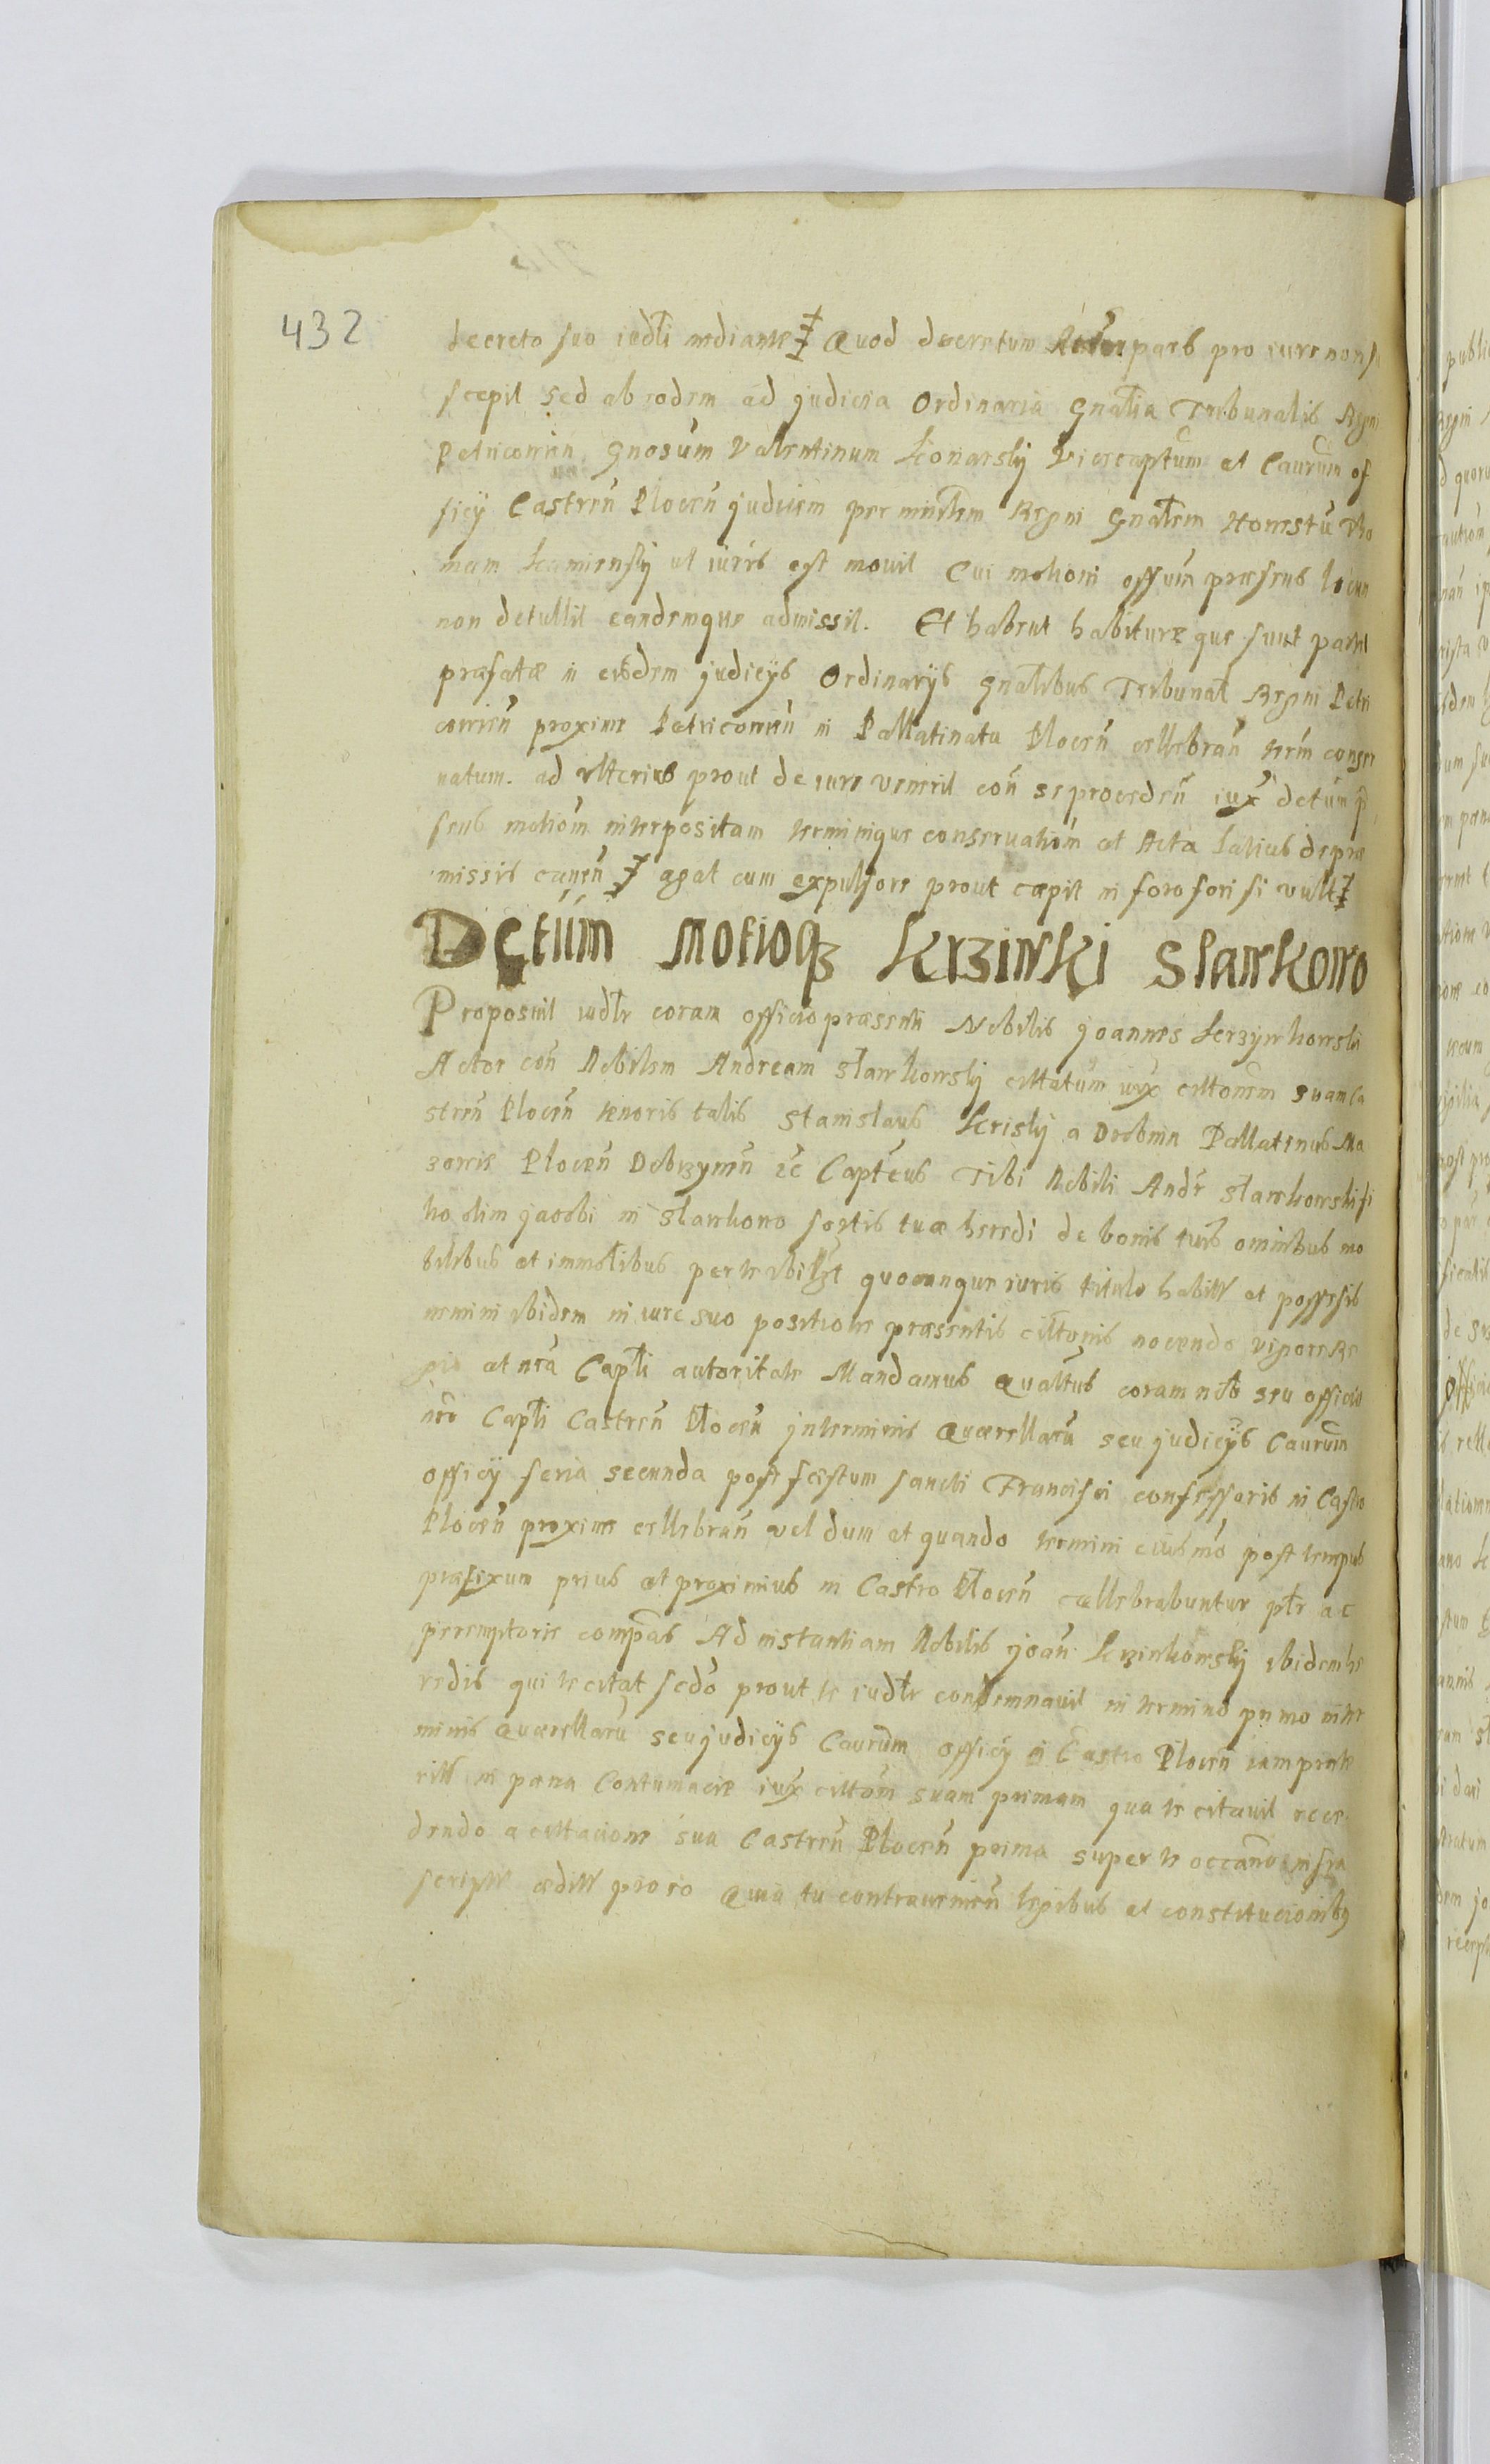 432
decreto suo iudłi mediante Quod decretum Actorea pars pro iure non su
scepit sed ab eodem ad judicia Ordinaria Gnałia Tribunalis Regni
Petricovien Gnosum Valentinum Konarsky Vicecaptum et Caurum of
ficy Castren Plocen judicem per mintrem Regni Gnałem Honestu Tho
mam Kamiensky ut iuris est movit Cui motioni offum præsens locum
non detullit eandemque admissit. Et habent habituræ que sunt partes
præfatæ in eisdem judicijs Ordinarijs Gnałibus Tribunał Regni Petri
covien proxime Petricovien in Pallatinatu Plocen cellebran term conser
vatum. ad ulterius prout de iure venerit con se proceden iux detum p
sens motiom interpositam terminique conservatiom et Acta latius de præ
missis canen agat cum expulsore prout cæpit in foro fori si vult
Dctum motioq Krziwki Slawkowo
Proposuit iudłr coram officio præsenti Nobilis joannes Krzywkowski
Actor con Nobilem Andream Slawkowsky cittatum iux cittonem suam Ca
stren Plocen tenoris talis Stanislaus Krisky a Drobnin Pallatinus Ma
zovie Plocen Dobrzymen ec Capteus Tibi Nobili Andr Slawkowski fi
lio olim jacobi in Slawkowo sortis tuæ heredi de bonis tuis omnibus mo
bilibus et immobilibus per te ubilibet quocunque iuris titulo habitis et possesis
nemini ibidem in iure suo positione præsentis cittonis nocendo vigore Re
gia et nra Capłi autoritate Mandamus Quattus coram nobis seu officio
nro Capłi Castren Plocen in terminis Quærellaru seu judicijs Caurum
officy feria secunda post fæstum sancti Francisci confessoris in Castro
Plocen proxime cellebran vel dum et quando termini eiusmo post tempus
præfixum prius et proximius in Castro Plocen cællebrabuntur płr ac
peremptorie compas Ad instantiam Nobilis joan Krziwkowsky ibidem he
redis qui te citat sedo prout te iudłr condemnavit in termino primo in ter
minis Quærellaru seu judicijs Caurum officy in Castro Plocen iam præte
ritis in pæna Contumaciæ iux cittom suam primam qua te citavit rece
dendo a cittacione sua Castren Plocen prima super te occano infra
scriptæ æditæ pro eo Quia tu contravenien legibus et constitucionibq